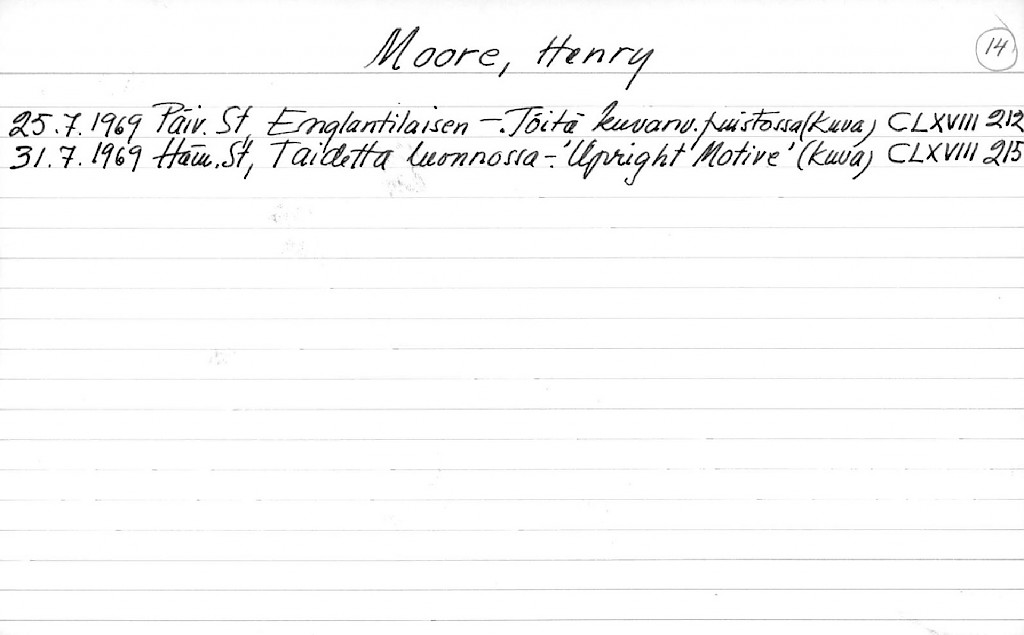 Moore, Henry
14
25.7.1969 Päiv. St, Englantilaisen -:n Töitä kuvanv.puistossa (Kuva) CLXVIII 212
31.7.1969 Häm. St, Taidetta luonnossa -: 'Upright Motive' (Kuva) CLXVIII 215